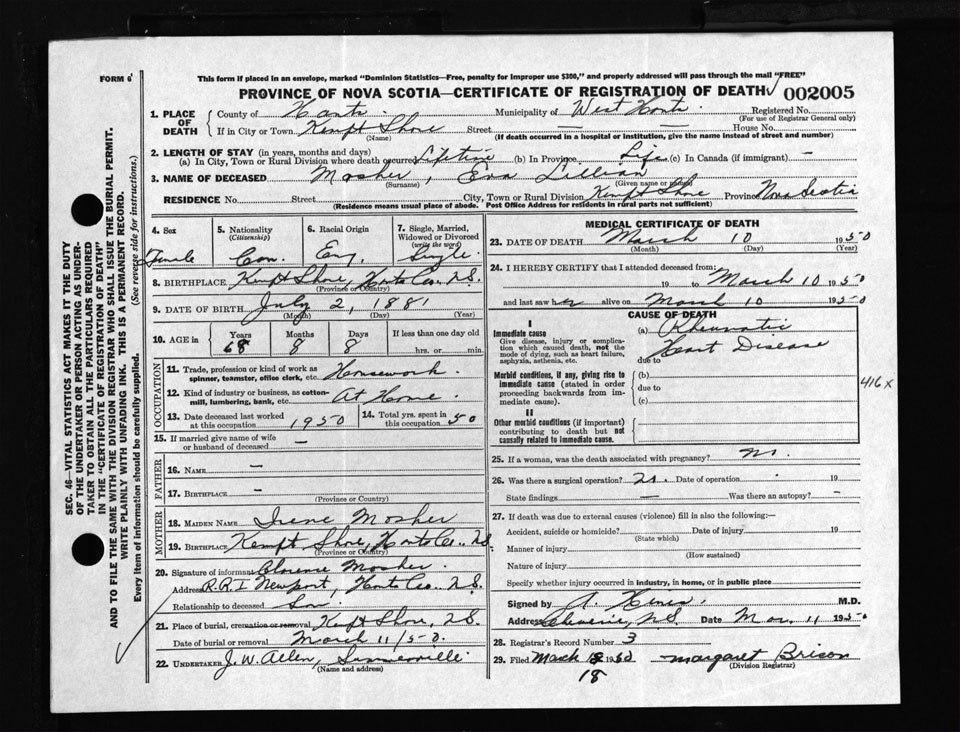 FORM 6
This form if placed in an envelope, marked "Dominion Statistics—Free, penalty for improper use $300," and properly addressed will pass through the mail "FREE"
PROVINCE OF NOVA SCOTIA—CERTIFICATE OF REGISTRATION OF DEATH 002005
SEC. 46—VITAL STATISTICS ACT MAKES IT THE DUTY
OF THE UNDERTAKER OR PERSON ACTING AS UNDER-
TAKER TO OBTAIN ALL THE PARTICULARS REQUIRED
IN THE "CERTIFICATE OF REGISTRATION OF DEATH"
AND TO FILE THE SAME WITH THE DIVISION REGISTRAR WHO SHALL ISSUE THE BURIAL PERMIT.
WRITE PLAINLY WITH UNFADING INK. THIS IS A PERMANENT RECORD.
Every item of information should be carefully supplied. (See reverse side for instructions.)
1. PLACE OF DEATH County of Hants Municipality of West Hants. Registered No.
(For use of Registrar General only)
If in City or Town Kempt Shore Street — House No.
(Name) (If death occurred in a hospital or institution, give the name instead of street and number)
2. LENGTH OF STAY (in years, months and days)
(a) In City, Town or Rural Division where death occurred Lifetime (b) In Province Life (c) In Canada (if immigrant) —
3. NAME OF DECEASED Mosher, Eva Lillian
(Surname) (Given name or names)
RESIDENCE No. Street City, Town or Rural Division Kempt Shore Province Nova Scotia
(Residence means usual place of abode. Post Office Address for residents in rural parts not sufficient)
4. Sex 5. Nationality (Citizenship) 6. Racial Origin 7. Single, Married, Widowed or Divorced (write the word)
Female Can. Eng. Single.
8. BIRTHPLACE Kempt Shore, Hants Co. N.S.
(Province or Country)
9. DATE OF BIRTH July 2, 1881
(Month) (Day) (Year)
10. AGE in Years Months Days If less than one day old
68 8 8 hrs. or min.
OCCUPATION
11. Trade, profession or kind of work as spinner, teamster, office clerk, etc. Housework.
12. Kind of industry or business, as cotton-mill, lumbering, bank, etc. At Home.
13. Date deceased last worked at this occupation 1950 14. Total yrs. spent in this occupation 50
15. If married give name of wife or husband of deceased —
FATHER
16. NAME —
17. BIRTHPLACE —
(Province or Country)
MOTHER
18. MAIDEN NAME Irene Mosher
19. BIRTHPLACE Kempt Shore, Hants Co., N.S.
(Province or Country)
20. Signature of informant Clarence Mosher.
Address R.R.1 Newport, Hants Co. N.S.
Relationship to deceased Son.
21. Place of burial, cremation or removal Kempt Shore, N.S.
Date of burial or removal March 11/50.
22. UNDERTAKER J.W. Allen, Summerville
(Name and address)
MEDICAL CERTIFICATE OF DEATH
23. DATE OF DEATH March 10 1950
(Month) (Day) (Year)
24. I HEREBY CERTIFY that I attended deceased from:
19 to March 10 1950
and last saw her alive on March 10 1950
CAUSE OF DEATH
I
Immediate cause (a) Rheumatic
Give disease, injury or complica-
tion which caused death, not the Heart Disease
mode of dying, such as heart failure,
asphyxia, asthenia, etc. due to
Morbid conditions, if any, giving rise to (b)
immediate cause (stated in order due to
proceeding backwards from im-
mediate cause). (c)
416x
II
Other morbid conditions (if important)
contributing to death but not
causally related to immediate cause.
25. If a woman, was the death associated with pregnancy? No.
26. Was there a surgical operation? No. Date of operation 19
State findings — Was there an autopsy? —
27. If death was due to external causes (violence) fill in also the following:—
Accident, suicide or homicide? Date of injury 19
(State which)
Manner of injury
(How sustained)
Nature of injury
Specify whether injury occurred in industry, in home, or in public place
Signed by A. M.D.
Address N.S. Date Mar. 11 1950
28. Registrar's Record Number 3
29. Filed March 1950 Margaret Brison
(Division Registrar)
18